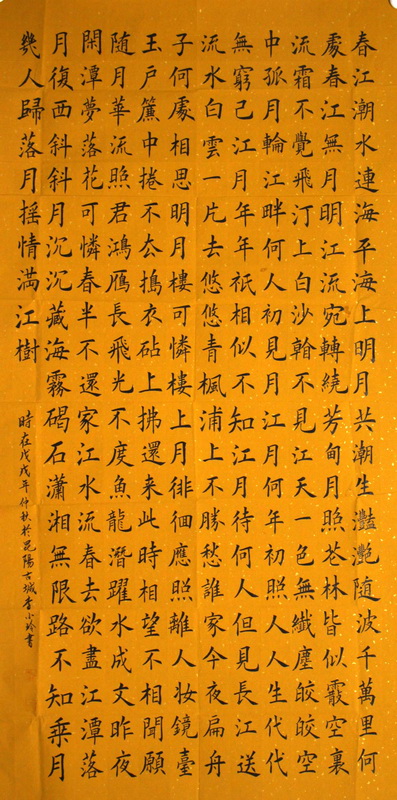 春江潮水連海平海上明月共潮生灧灧隨波千萬里何
處春江無月明江流宛轉繞芳甸月照花林皆似霰空裏
流霜不覺飛汀上白沙看不見江天一色無纖塵皎皎空
中孤月輪江畔何人初見月江月何年初照人人生代代
無窮已江月年年祇相似不知江月待何人但見長江送
流水白雲一片去悠悠青楓浦上不勝愁誰家今夜扁舟
子何處相思明月樓可憐樓上月徘徊應照離人妝鏡臺
玉戶簾中捲不去搗衣砧上拂還来此時相望不相聞願
随月華流照君鴻雁長飛光不度魚龍潛躍水成文昨夜
閑潭夢落花可憐春半不還家江水流春去欲盡江潭落
月復西斜斜月沉沉藏海霧碣石瀟湘無限路不知乘月
幾人歸落月搖情満江樹
時在戊戌年仲秋於昆陽古城李小玲書